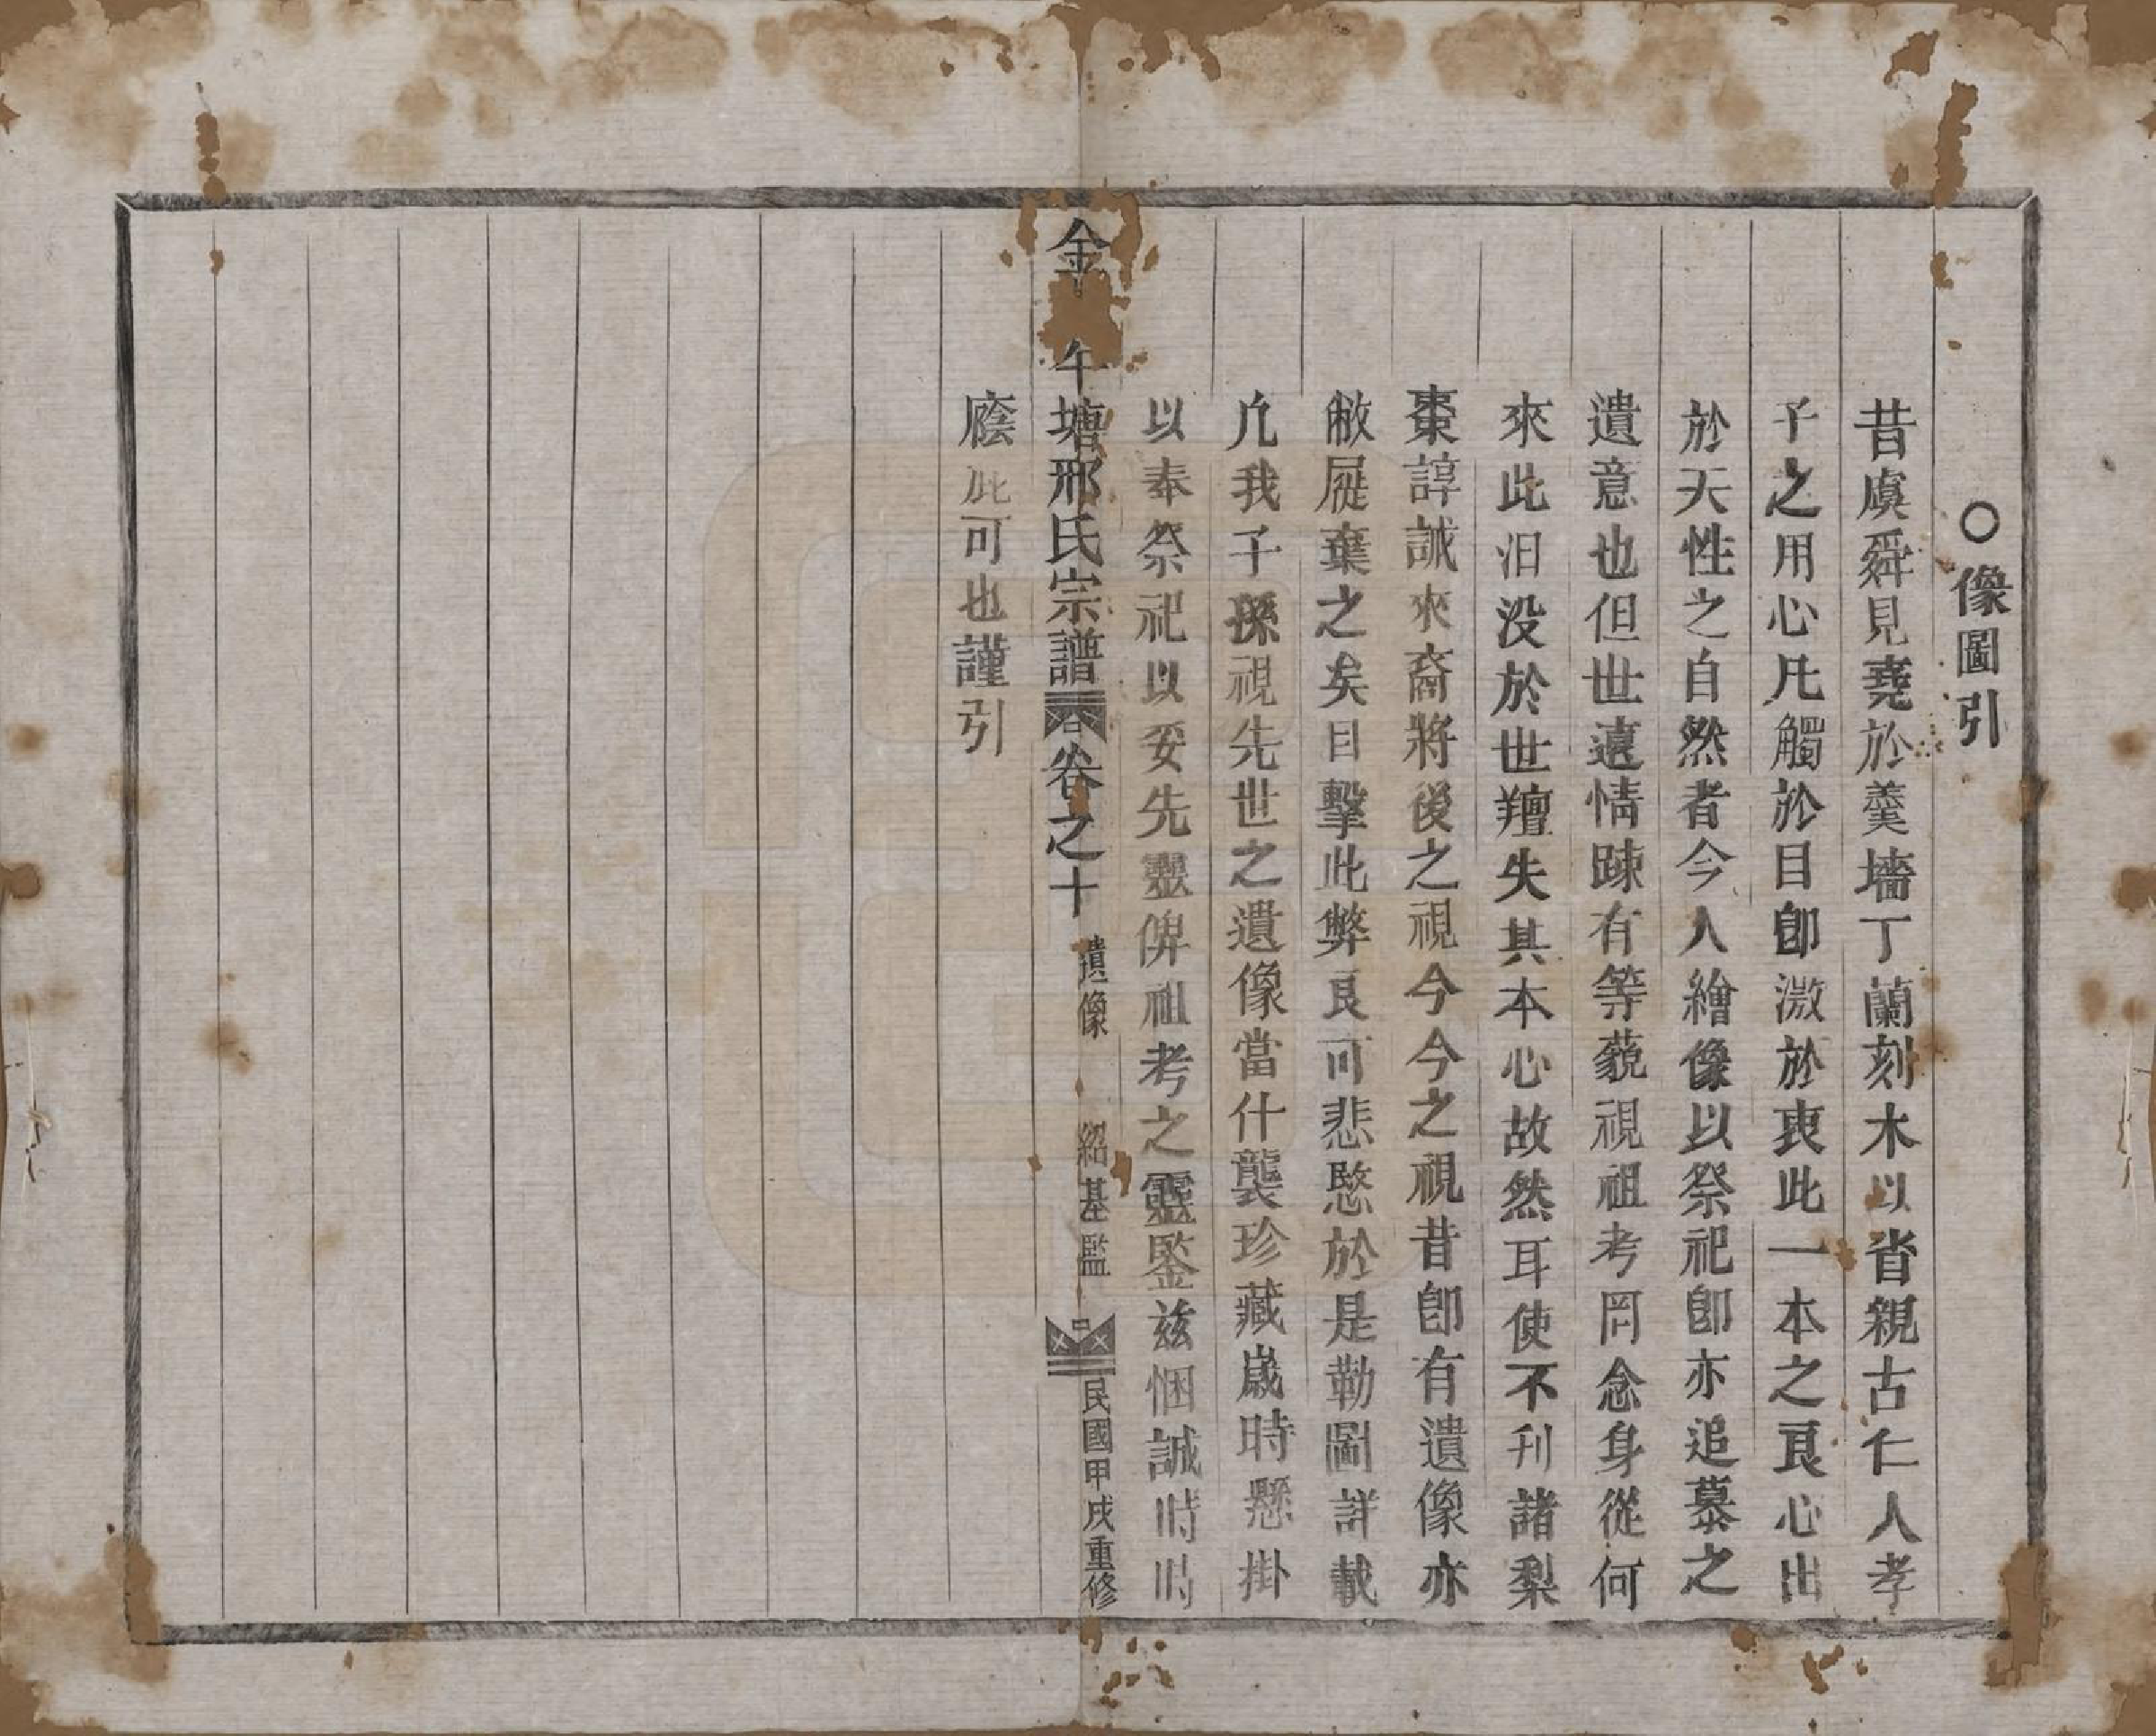 ○像圖引
昔虞舜見堯於羹墻丁蘭刻木以省親古仁人孝
子之用心凡觸於目卽激於衷此一本之良心出
於天性之自然者今人繪像以祭祀卽亦追慕之
遺意也但世遠情踈有等藐視祖考罔念身從何
來此汨没於世羶失其本心故然耳使不刋諸梨
棗諄誡來裔將後之視今今之視昔卽有遺像亦
敝屣棄之矣目擊此弊良可悲愍於是勒圖詳載
凢我子孫視先世之遺像當什襲珍藏歲時懸掛
以奉祭祀以妥先靈俾祖考之靈鑒兹悃誠時時
廕此可也謹引
金 午塘邢氏宗譜 卷之十 遺像 紹基監 民國甲戌重修